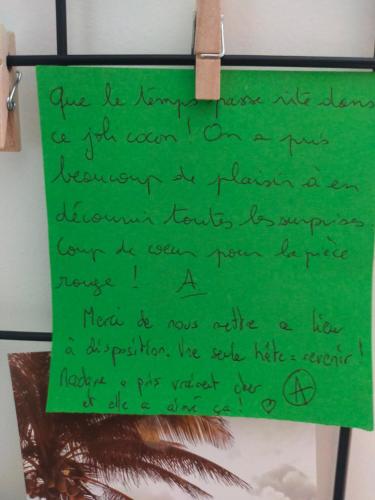 Que le temps passe vite dans
ce joli cocon ! On a pris
beaucoup de plaisir à en
découvrir toutes les surprises
Coup de coeur pour la pièce
rouge ! A
Merci de nous mettre ce lieu
à disposition. Une seule hâte = revenir !
Madame a pris vraiment cher A
et elle a aimé ça ! ♡